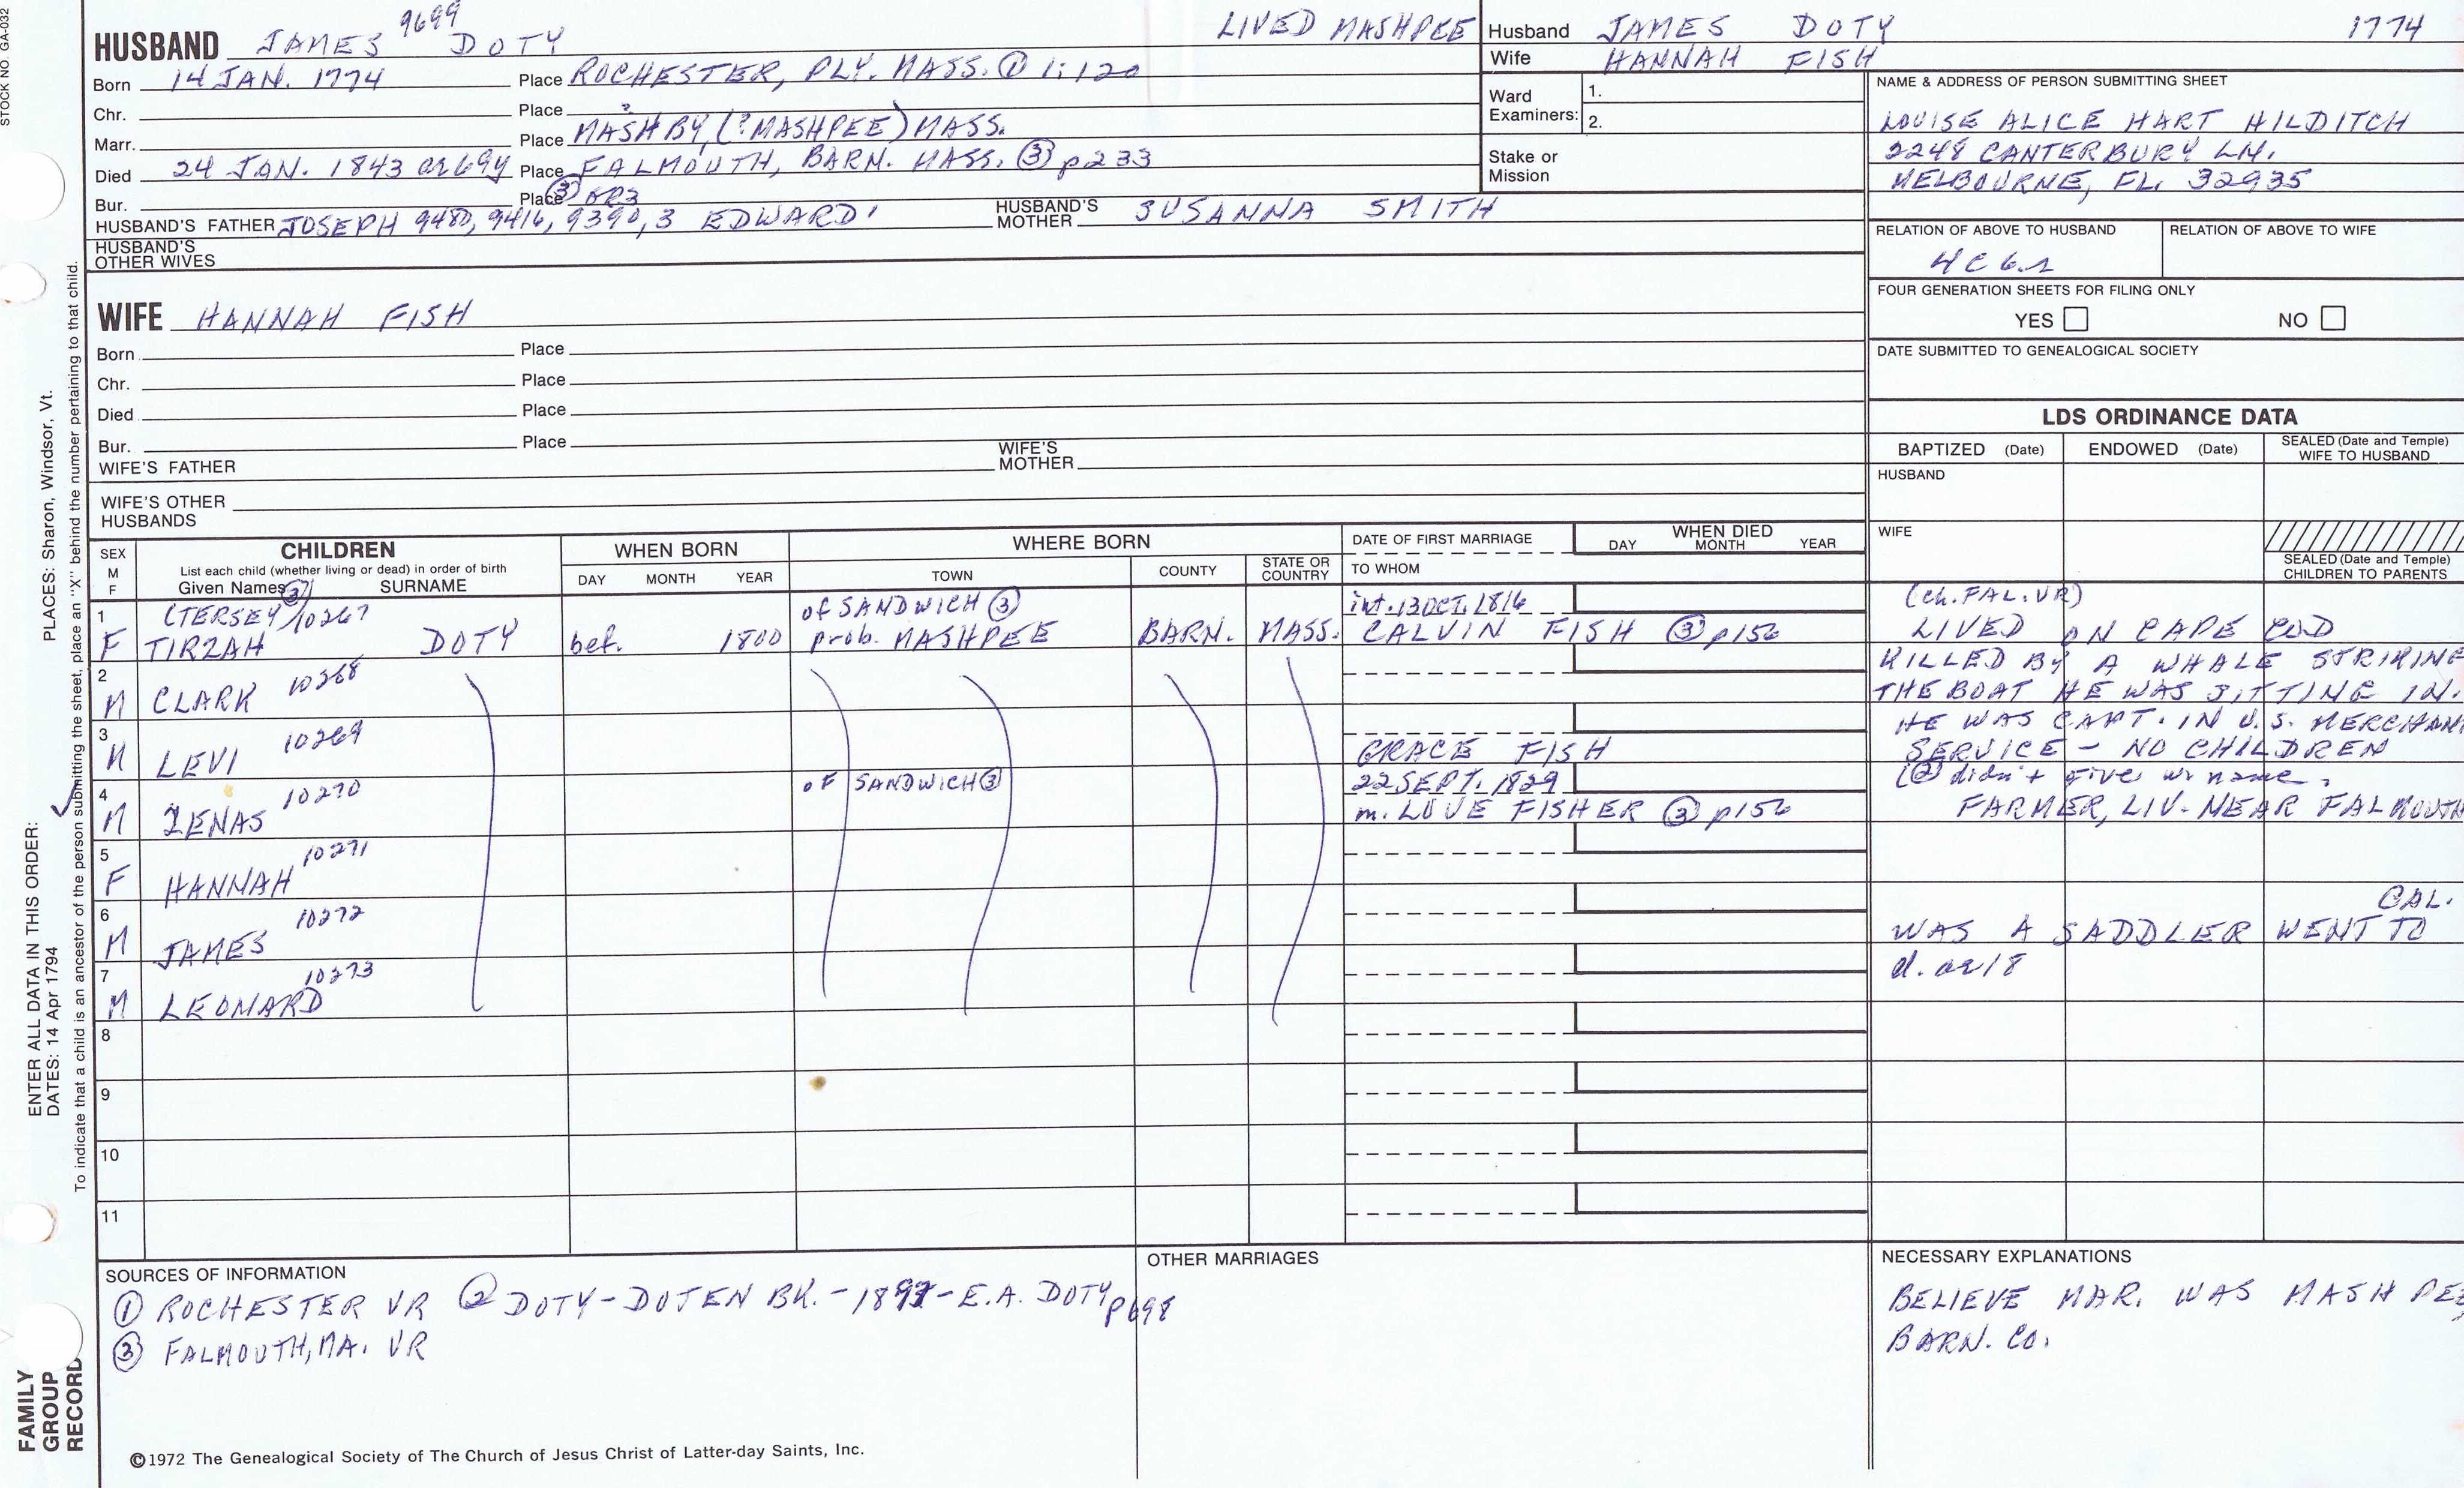 STOCK NO. GA-032
9699
HUSBAND JAMES DOTY
LIVED MASHPEE
Born 14 JAN. 1774 Place ROCHESTER, PLY. MASS. ① 1:120
Chr. Place
Marr. Place MASHBY, (?MASHPEE) MASS.
Died 24 JAN. 1843 ae 69y Place FALMOUTH, BARN. MASS. ③ p233
Bur. Place ③ GR3
HUSBAND'S FATHER JOSEPH 9480, 9416, 9390, 3 EDWARD' HUSBAND'S MOTHER SUSANNA SMITH
HUSBAND'S OTHER WIVES
Husband JAMES DOTY 1774
Wife HANNAH FISH
Ward Examiners: 1.
2.
Stake or Mission
NAME & ADDRESS OF PERSON SUBMITTING SHEET
LOUISE ALICE HART HILDITCH
2248 CANTERBURY LN.
MELBOURNE, FL. 32935
RELATION OF ABOVE TO HUSBAND RELATION OF ABOVE TO WIFE
4C6.r
FOUR GENERATION SHEETS FOR FILING ONLY
YES NO
DATE SUBMITTED TO GENEALOGICAL SOCIETY
WIFE HANNAH FISH
Born Place
Chr. Place
Died Place
Bur. Place
WIFE'S FATHER WIFE'S MOTHER
WIFE'S OTHER HUSBANDS
LDS ORDINANCE DATA
BAPTIZED (Date) ENDOWED (Date) SEALED (Date and Temple) WIFE TO HUSBAND
HUSBAND
WIFE
SEALED (Date and Temple) CHILDREN TO PARENTS
SEX M F
CHILDREN
List each child (whether living or dead) in order of birth
Given Names SURNAME
WHEN BORN
DAY MONTH YEAR
WHERE BORN
TOWN COUNTY STATE OR COUNTRY
DATE OF FIRST MARRIAGE
TO WHOM
WHEN DIED
DAY MONTH YEAR
1 (TERSEY ③) 10267 of SANDWICH ③ int. 13 OCT. 1816 (ch. FAL. VR)
F TIRZAH DOTY bef. 1800 prob. MASHPEE BARN. MASS. CALVIN FISH ③ p156 LIVED ON CAPE COD
2 M CLARK 10268 KILLED BY A WHALE STRIKING
THE BOAT HE WAS SITTING IN.
3 M LEVI 10269 GRACE FISH HE WAS CAPT. IN U.S. MERCHAN
SERVICE - NO CHILDREN
4 M ZENAS 10270 OF SANDWICH ③ 22 SEPT. 1829 (② didn't give wi name.
m. LOVE FISHER ③ p156 FARMER, LIV. NEAR FALMOUTH
5 F HANNAH 10271
6 M JAMES 10272 CAL.
WAS A SADDLER WENT TO
7 M LEONARD 10273 d. ae 18
8
9
10
11
SOURCES OF INFORMATION
① ROCHESTER VR ② DOTY-DOTEN BK. - 1897 - E.A. DOTY p698
③ FALMOUTH, MA. VR
OTHER MARRIAGES
NECESSARY EXPLANATIONS
BELIEVE MAR. WAS MASHPEE
BARN. CO.
©1972 The Genealogical Society of The Church of Jesus Christ of Latter-day Saints, Inc.
ENTER ALL DATA IN THIS ORDER:
PLACES: Sharon, Windsor, Vt.
DATES: 14 Apr 1794
To indicate that a child is an ancestor of the person submitting the sheet, place an "X" behind the number pertaining to that child.
FAMILY
GROUP
RECORD